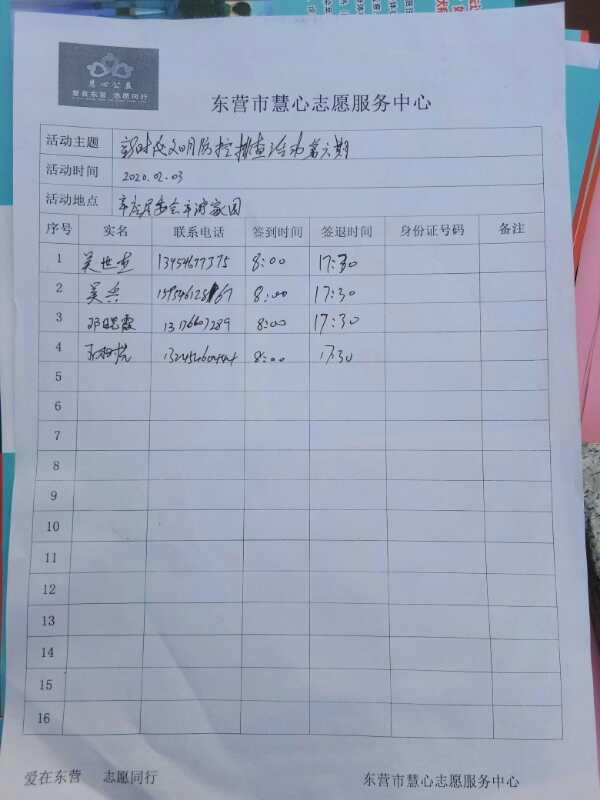 慧心公益
爱在东营 志愿同行
东营市慧心志愿服务中心
活动主题 新时代文明防控排查活动第六期
活动时间 2020.02.03
活动地点
序号 实名 联系电话 签到时间 签退时间 身份证号码 备注
1 吴世 13454677375 8:00 17:30
2 吴兵 8:00 17:30
3 邓晓霞 8:00 17:30
4 8:00 17:30
5
6
7
8
9
10
11
12
13
14
15
16
爱在东营 志愿同行 东营市慧心志愿服务中心